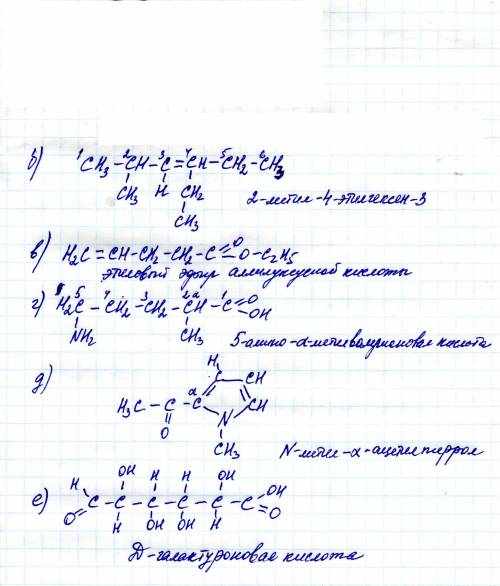 б) ¹CH₃-²CH-³C=⁴CH-⁵CH₂-⁶CH₃
CH₃ H CH₂
CH₃
2-метил-4-этилгексен-3
в) H₂C=CH-CH₂-CH₂-C=O-O-C₂H₅
этиловый эфир аллилуксусной кислоты
г) ⁵H₂C-⁴CH₂-³CH₂-²ᵅCH-¹C=O
OH
NH₂ CH₃
5-амино-α-метилвалериановая кислота
д) H
C-CH
H₃C-C-C α CH
O N
CH₃
N-метил-α-ацетилпиррол
е) H OH H H OH OH
C-C-C-C-C-C
O H OH OH H O
Д-галактуроновая кислота